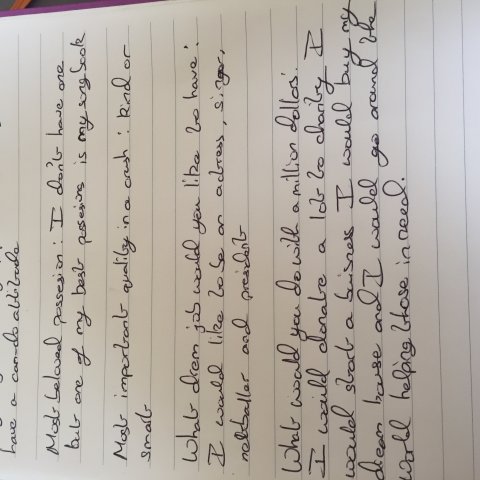 have a can-do attitude
Most beloved possesion: I don't have one
but one of my best possesions is my song book
Most important quality in a crush: kind or
smart
What dream job would you like to have:
I would like to be an actress, singer,
netballer and president
What would you do with a million dollas:
I would donate a lot to charity I
would start a buisness I would buy my
dream house and I would go around the
world helping those in need.